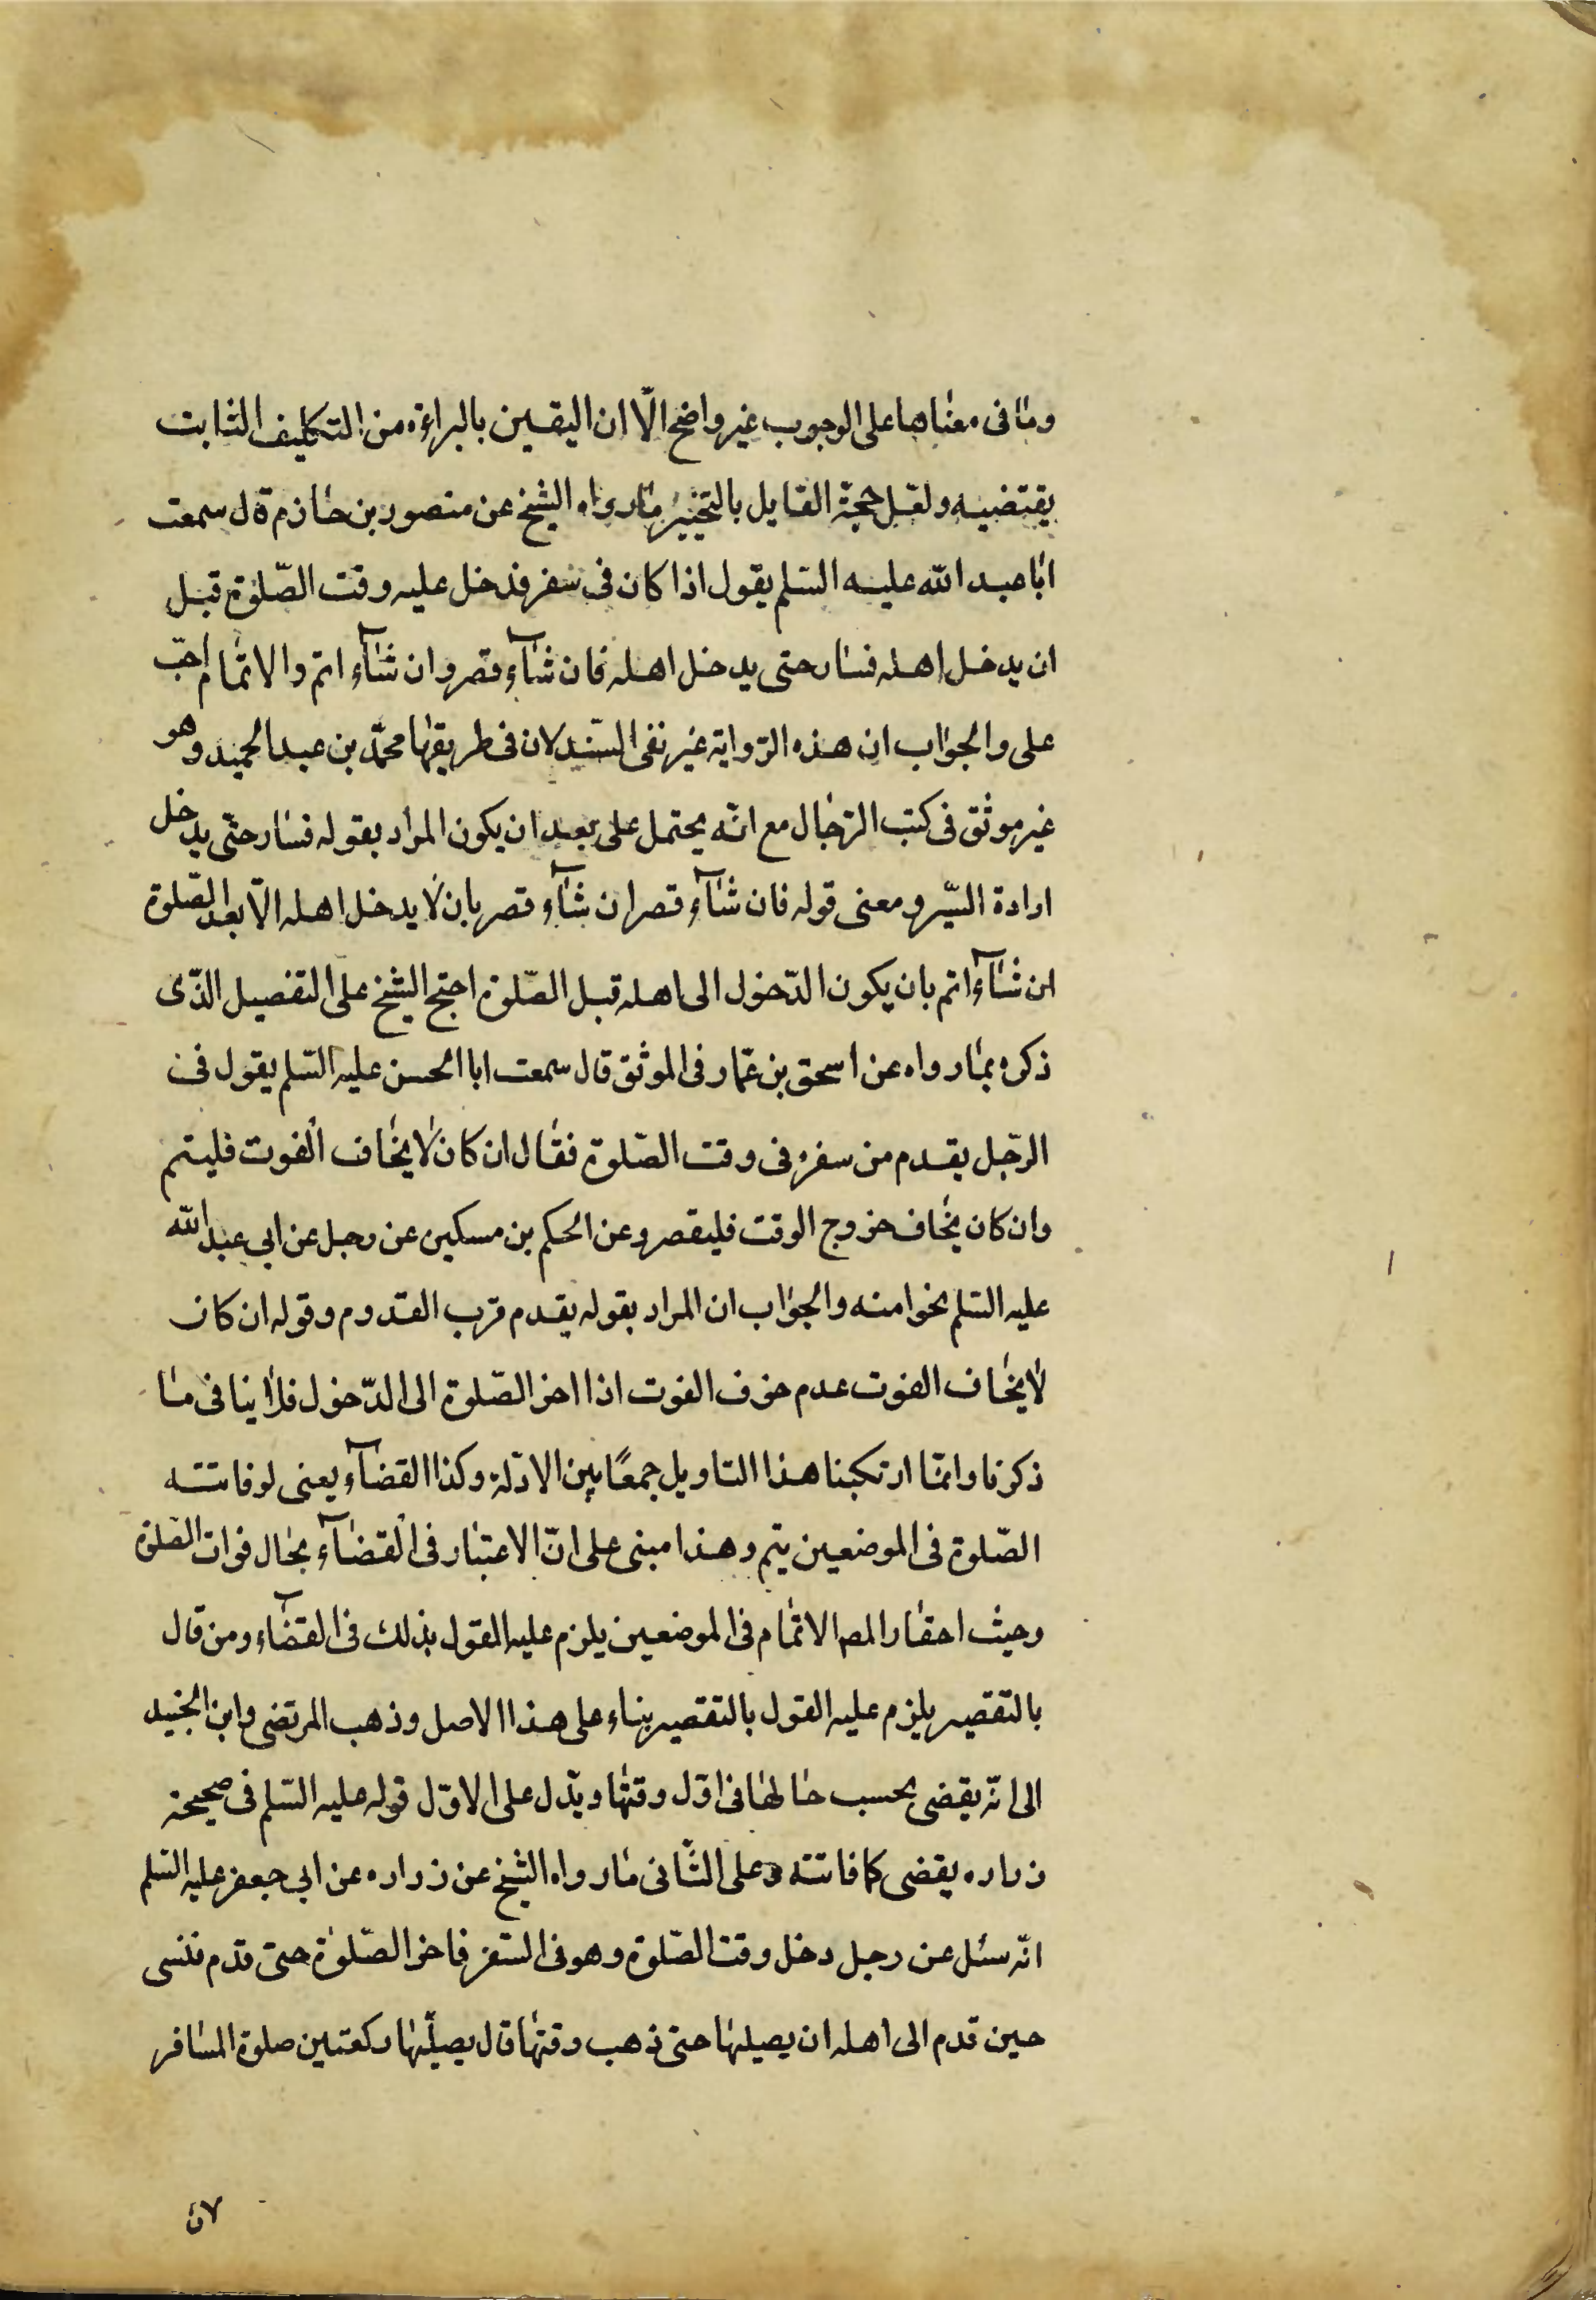 وما فى معناها على الوجوب غير واضح الّا ان اليقين بالبراءة من التكليف الثابت
يقتضيه ولعل حجة القايل بالتخيير ما رواه الشيخ عن منصور بن حازم قال سمعت
ابا عبد الله عليه السّلم يقول اذا كان فى سفر فدخل عليه وقت الصّلوة قبل
ان يدخل اهله فسار حتى يدخل اهله فان شآء قصر وان شآء اتم والاتمام احبّ
على والجواب ان هذه الرّواية غير نقى السّند لان فى طريقها محمّد بن عبد الحميد وهو
غير موثق فى كتب الرّجال مع انّه يحتمل على بعد ان يكون المراد بقوله فسار حتّى يدخل
ارادة السّير ومعنى قوله فان شآء قصر ان شآء قصر بان لا يدخل اهله الّا بعد الصّلوة
ان شآء اتم بان يكون الدّخول الى اهله قبل الصّلوة احتج الشيخ على التفصيل الذّى
ذكره بما رواه عن اسحق بن عمّار فى الموثق قال سمعت ابا الحسن عليه السّلم يقول فى
الرّجل يقدم من سفره فى وقت الصّلوة فقال ان كان لا يخاف الفوت فليتم
وان كان يخاف خروج الوقت فليقصر وعن الحكم بن مسكين عن رجل عن ابى عبد الله
عليه السّلم نحوا منه والجواب ان المراد بقوله يقدم قرب القدوم وقوله ان كان
لا يخاف الفوت عدم خوف الفوت اذا اخر الصّلوة الى الدّخول فلا ينافى ما
ذكرنا وانمّا ارتكبنا هذا التاويل جمعًا بين الادلّة وكذا القضآء يعنى لو فاتته
الصّلوة فى الموضعين يتم وهذا مبنى على انّ الاعتبار فى القضآء بحال فوات الصّلوة
وحيث اختار المص الاتمام فى الموضعين يلزم عليه القول بذلك فى القضآء ومن قال
بالتقصير يلزم عليه القول بالتقصير بناء على هذا الاصل وذهب المرتضى وابن الجنيد
الى انّه يقضى بحسب حالها فى اوّل وقتها ويدّل على الاوّل قوله عليه السّلم فى صحيحة
زراره يقضى كما فاتته وعلى الثّانى ما رواه الشيخ عن زراره عن ابى جعفر عليه السّلم
انّه سئل عن رجل دخل وقت الصّلوة وهو فى السّفر فاخر الصّلوة حتى قدم فنسى
حين قدم الى اهله ان يصيلها حتى ذهب وقتها قال يصيلّها ركعتين صلوة المسافر
لان